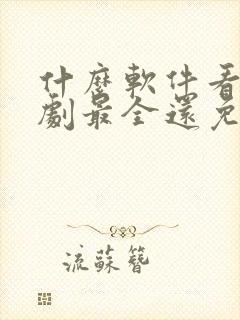 什麼軟件看
劇最全還免
流蘇簪